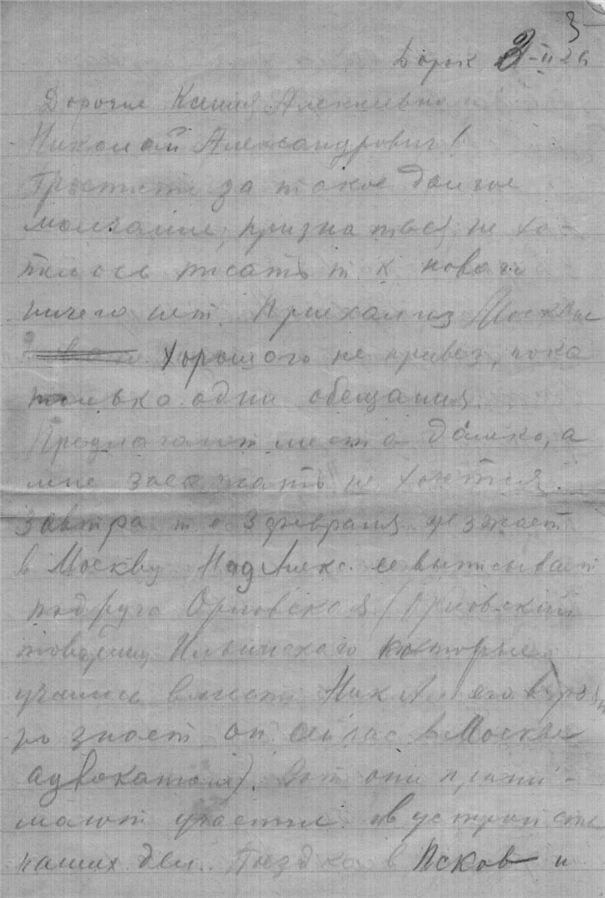 3
Борок 3-II 26
Дорогие Ксения Алексеевна и
Николай Александрович!
Простите за такое долгое
молчание, признаться, не хо-
телось писать т к нового
ничего нет. Приехал из Москвы
хорошого не привез, пока
только одни обещания.
Предлагают места далеко, а
мне заезжать не хочется.
завтра т е 3 февраля уезжает
в Москву Над Алекс. ее выписывает
подруга Орловская (Орловский
товарищ Ильинского которые
учились вместе Ник Ал его
знает он сейчас в Москве
адвокатом). Вот они прини-
мают участие в устройстве
наших дел. Поездка в Псков и